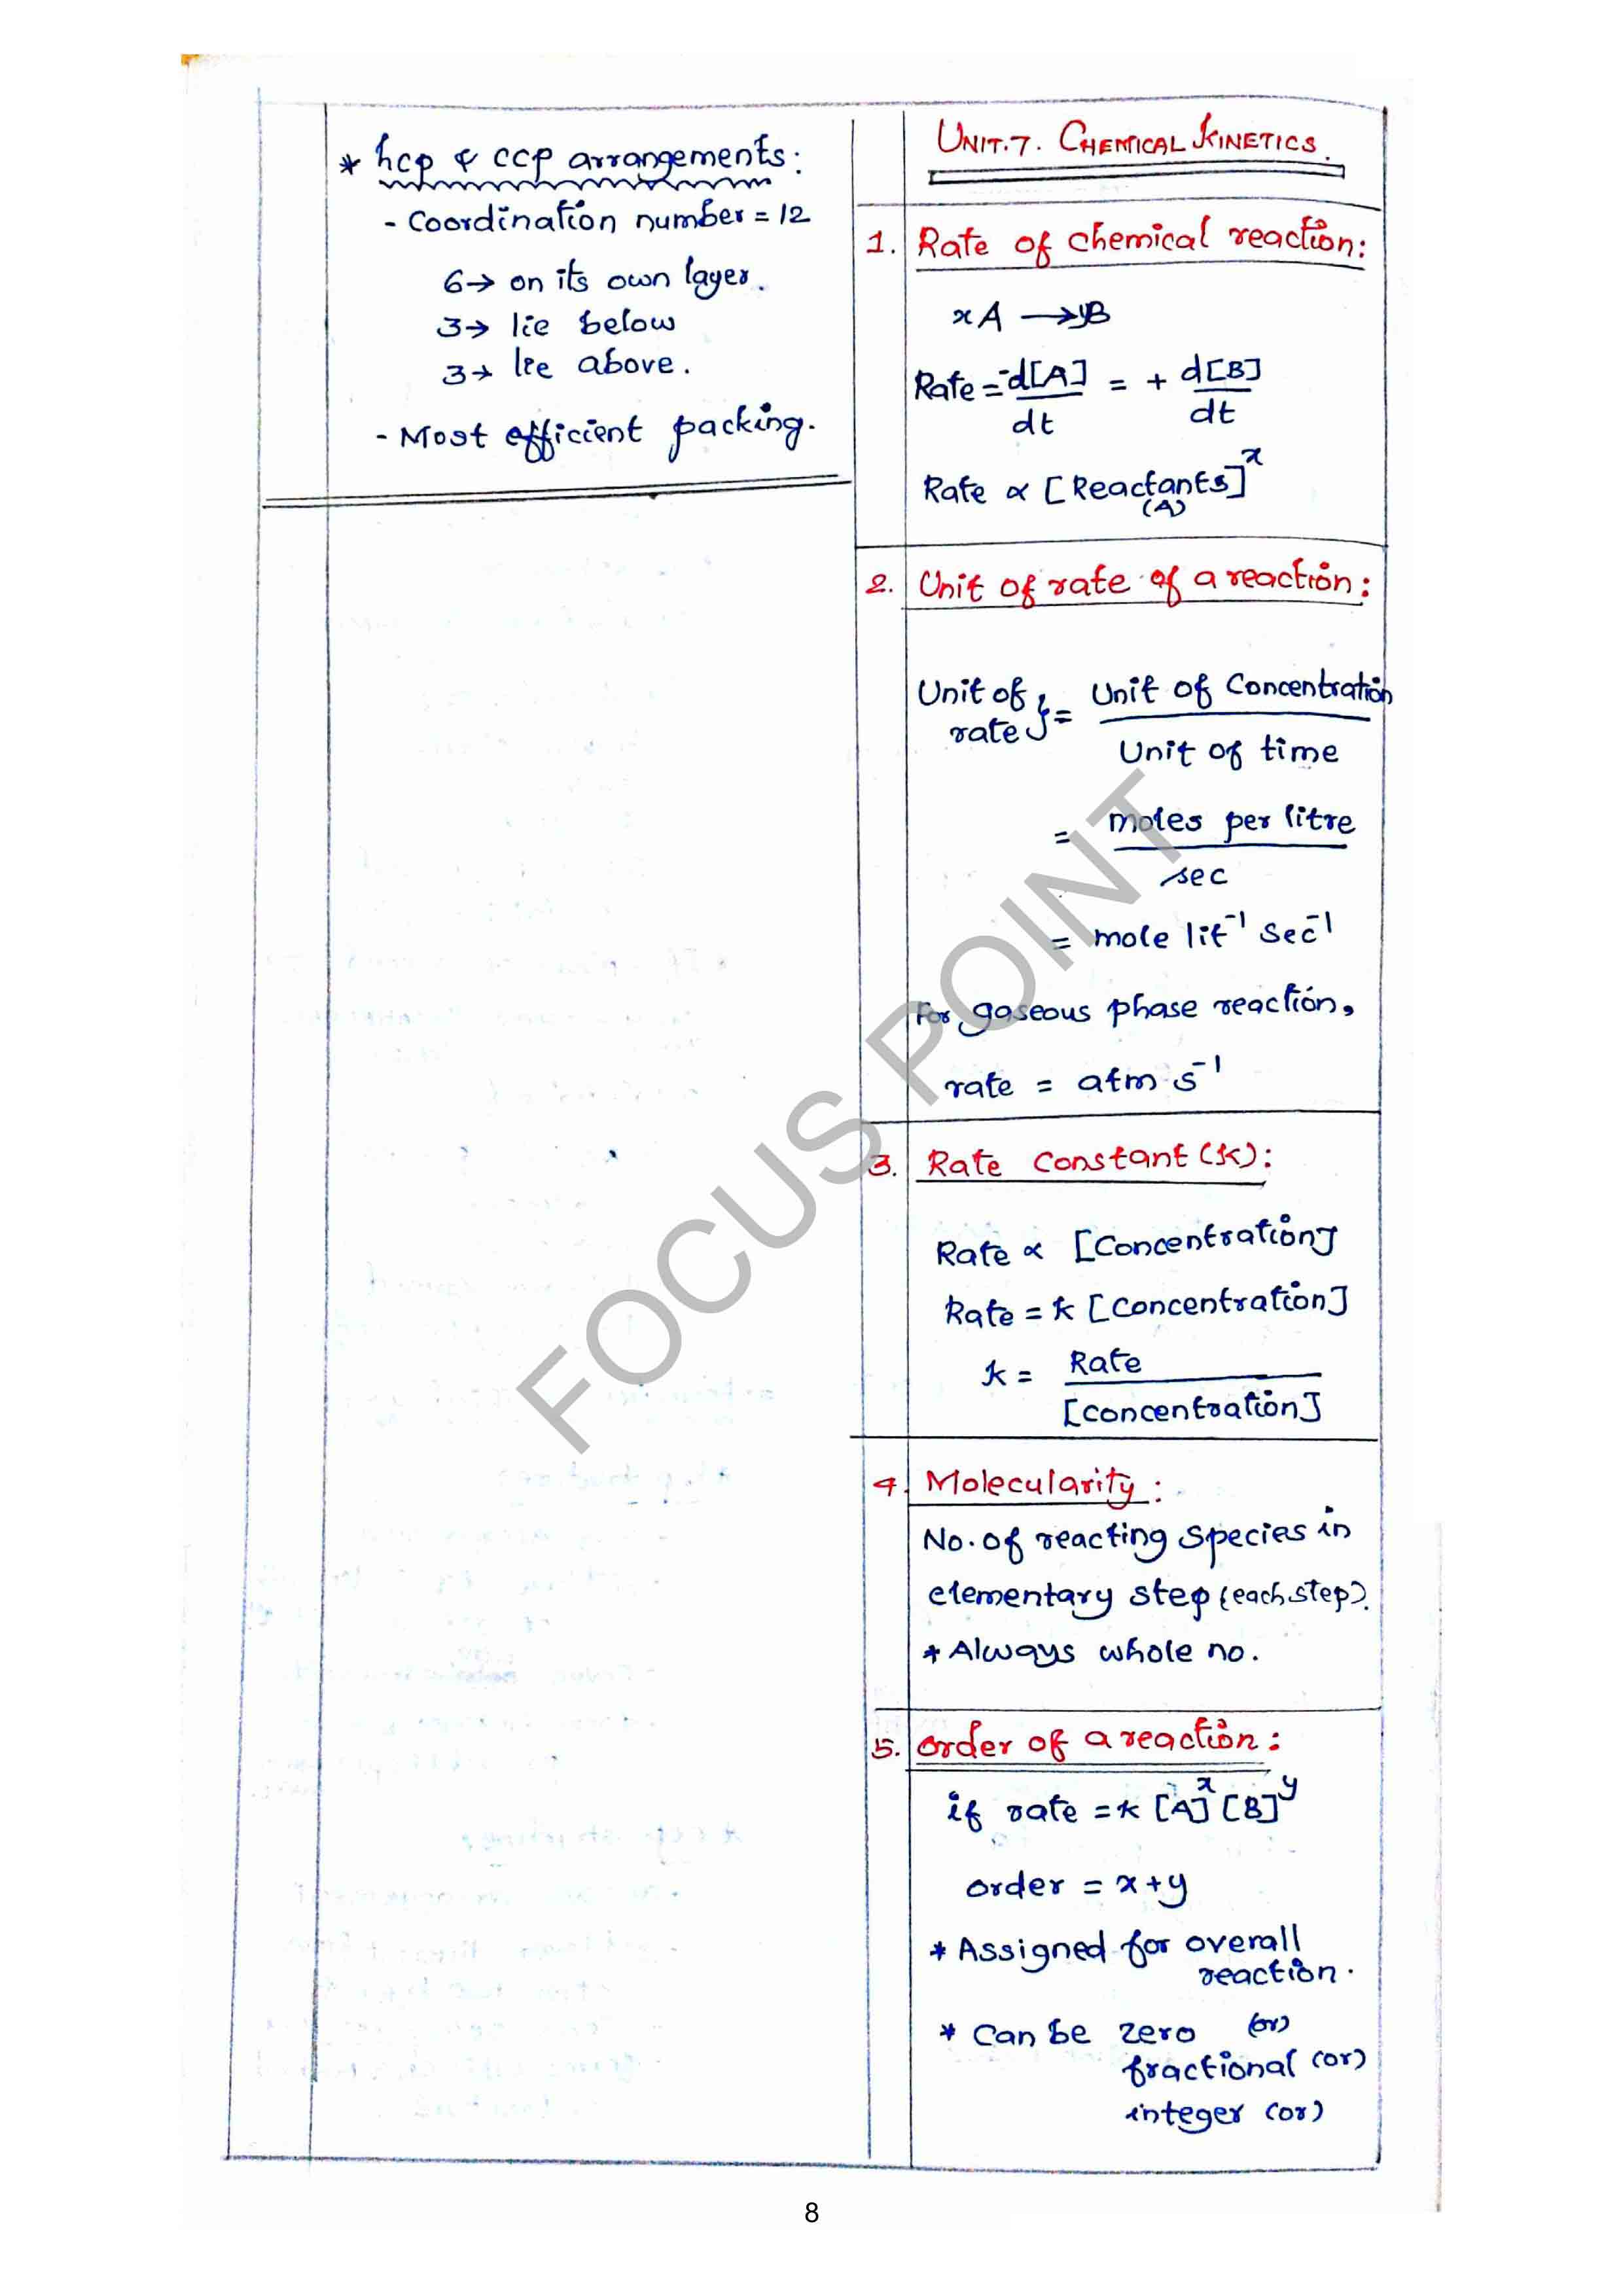 * hcp & ccp arrangements:
- Coordination number = 12
6→ on its own layer.
3→ lie below
3→ lie above.
- Most efficient packing.
UNIT.7. CHEMICAL KINETICS.
1. Rate of chemical reaction:
xA ⟶ yB
Rate = -d[A]/dt = + d[B]/dt
Rate ∝ [Reactants]^x
(A)
2. Unit of rate of a reaction:
Unit of rate } = Unit of Concentration / Unit of time
= moles per litre / sec
= mole lit⁻¹ sec⁻¹
For gaseous phase reaction,
rate = atm s⁻¹
3. Rate constant (k):
Rate ∝ [Concentration]
Rate = k [Concentration]
k = Rate / [concentration]
4. Molecularity:
No. of reacting species in
elementary step (each step).
* Always whole no.
5. Order of a reaction:
if rate = k [A]^x [B]^y
order = x+y
* Assigned for overall
reaction.
* Can be zero (or)
fractional (or)
integer (or)
FOCUS POINT
8